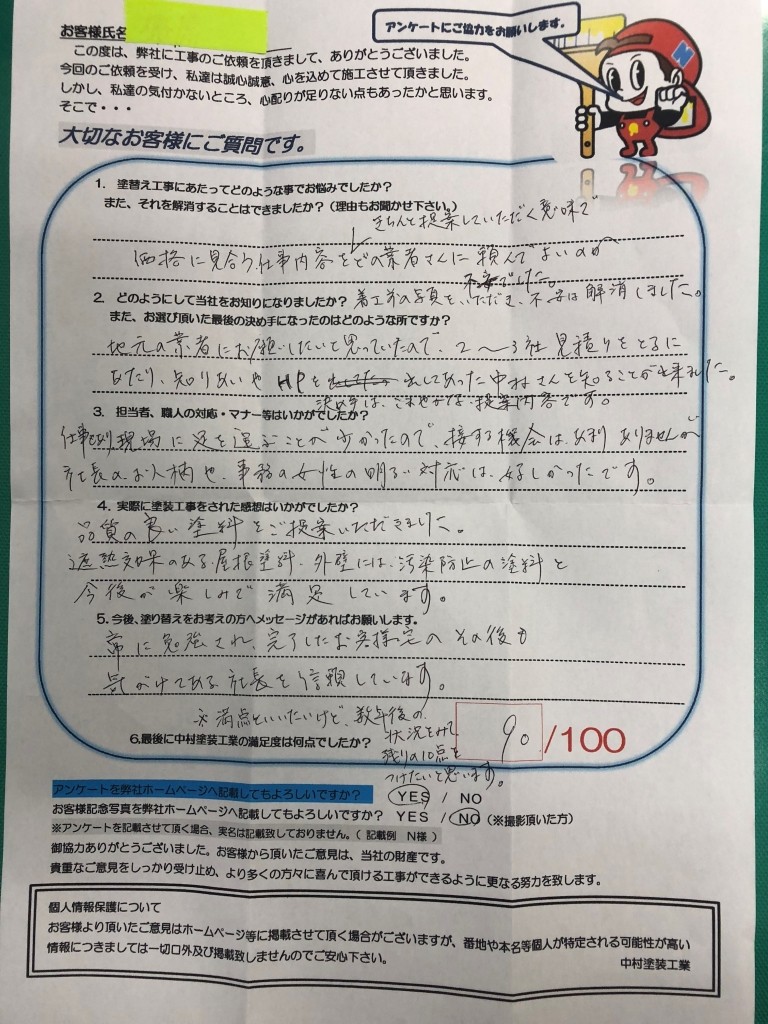 アンケートにご協力をお願いします。
お客様氏名
この度は、弊社に工事のご依頼を頂きまして、ありがとうございました。
今回のご依頼を受け、私達は誠心誠意、心を込めて施工させて頂きました。
しかし、私達の気付かないところ、心配りが足りない点もあったかと思います。
そこで・・・
N
大切なお客様にご質問です。
1. 塗替え工事にあたってどのような事でお悩みでしたか?
また、それを解消することはできましたか?(理由もお聞かせ下さい。)
きちんと提案していただく意味で
価格に見合う仕事内容をどの業者さんに頼んでよいのか
不安でした。
着工前の写真をいただき、不安は解消しました。
2. どのようにして当社をお知りになりましたか?
また、お選び頂いた最後の決め手になったのはどのような所ですか?
地元の業者にお願いしたいと思っていたので、2〜3社見積りをとるに
あたり、知りあいやHPを出してあった中村さんを知ることが出来ました。
決め手は、こまやかな提案内容です。
3. 担当者、職人の対応・マナー等はいかがでしたか?
仕事もあり現場に足を運ぶことが少かったので、接する機会はあまりありませんが
社長のお人柄や、事務の女性の明るい対応は、好しかったです。
4. 実際に塗装工事をされた感想はいかがでしたか?
品質の良い塗料をご提案いただきました。
遮熱効果のある屋根塗料、外壁には、汚染防止の塗料と
今後が楽しみで満足しています。
5. 今後、塗り替えをお考えの方へメッセージがあればお願いします。
常に勉強され、完了したお客様宅のその後も
気がけてある社長を信頼しています。
※満点といいたいけど、数年後の
状況をみて
残りの10点を
つけたいと思います。
6.最後に中村塗装工業の満足度は何点でしたか?
90/100
アンケートを弊社ホームページへ記載してもよろしいですか? YES / NO
お客様記念写真を弊社ホームページへ記載してもよろしいですか? YES / NO (※撮影頂いた方)
※アンケートを記載させて頂く場合、実名は記載致しておりません。( 記載例 N様 )
御協力ありがとうございました。お客様から頂いたご意見は、当社の財産です。
貴重なご意見をしっかり受け止め、より多くの方々に喜んで頂ける工事ができるように更なる努力を致します。
個人情報保護について
お客様より頂いたご意見はホームページ等に掲載させて頂く場合がございますが、番地や本名等個人が特定される可能性が高い
情報につきましては一切口外及び掲載致しませんのでご安心下さい。
中村塗装工業